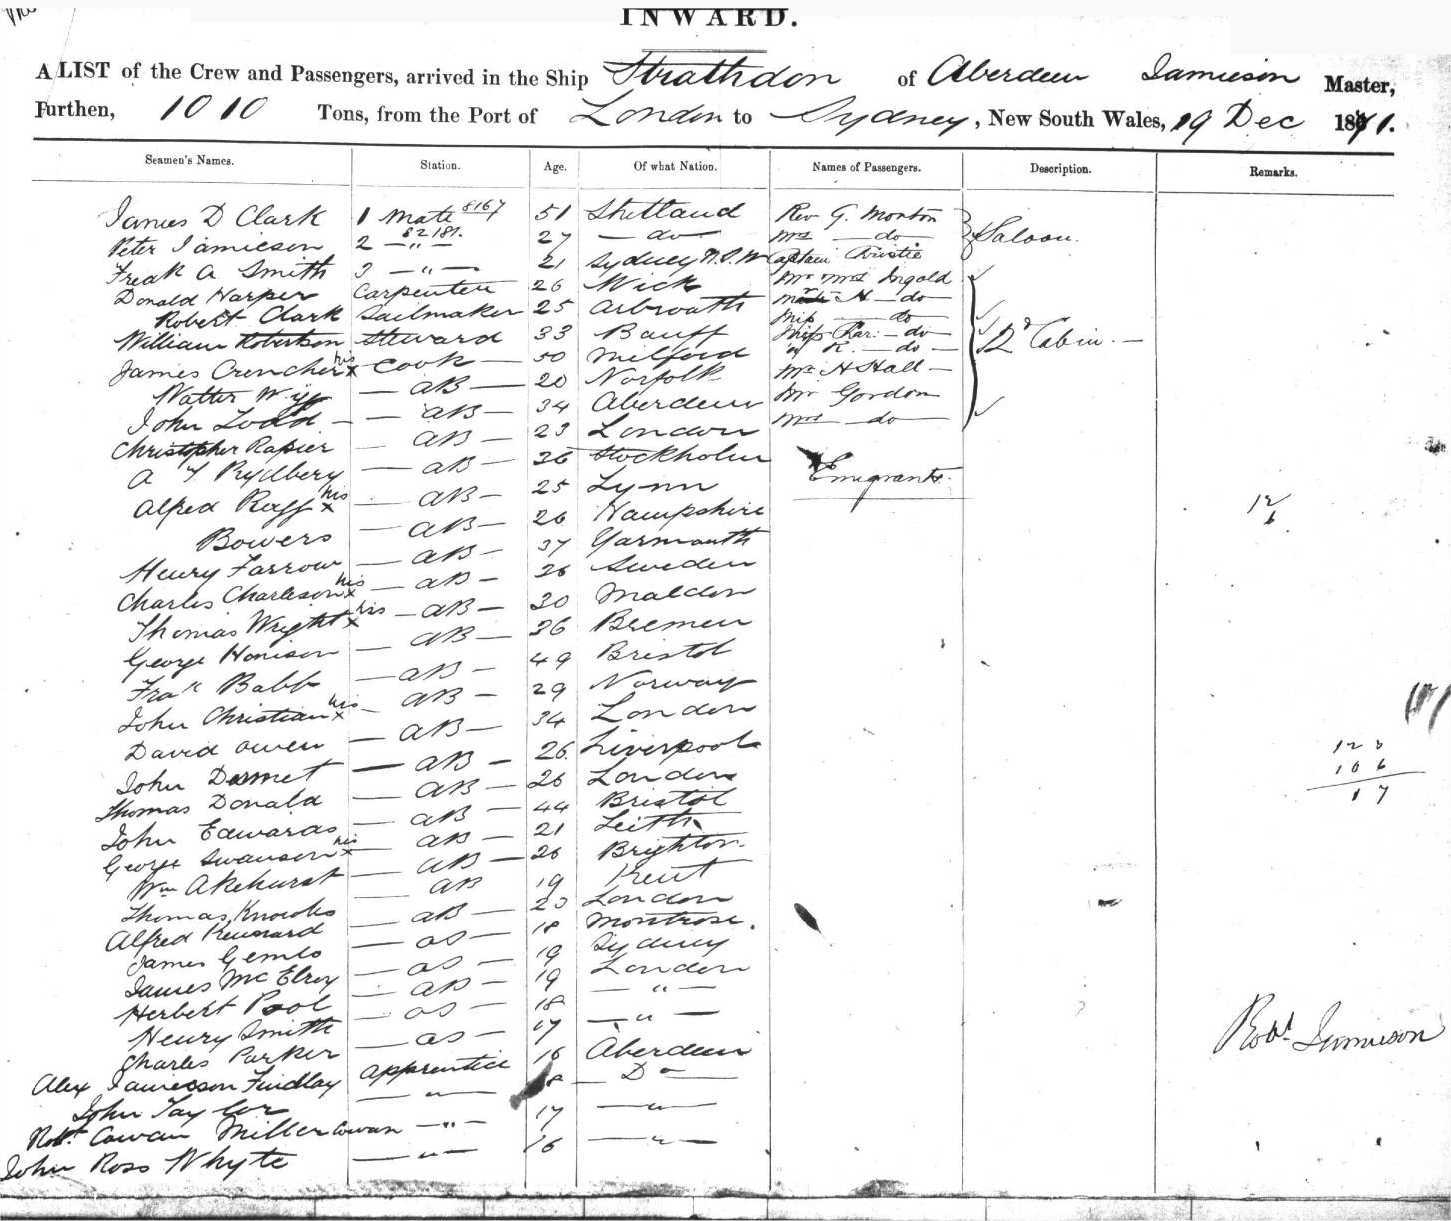 INWARD.
A LIST of the Crew and Passengers, arrived in the Ship Strathdon of Aberdeen Jamieson Master,
Burthen, 1010 Tons, from the Port of London to Sydney, New South Wales, 19 Dec 1871.
Seamen's Names. Station. Age. Of what Nation. Names of Passengers. Description. Remarks.
James D Clark 1 Mate 8167 51 Shetland Rev G. Morton
Peter Jamieson 2 — " — 82181. 27 — do — Mrs — do — Saloon.
Freak A Smith 3 — " — 21 Sydney N.S.W Captain Christie
Donald Harper Carpenter 26 Wick Mr & Mrs Ingold
Robert Clark Sailmaker 25 Arbroath H — do —
William Robertson Steward 33 Banff Miss — do —
James Crencher his x Cook — 50 Milford Miss Kar: — do — 2d Cabin. —
Walter Wyp — AB — 20 Norfolk " R. — do —
John Todd — AB — 34 Aberdeen Mr H Hall —
Christopher Rapier — AB — 23 London Mr Gordon
A F Rydberg — AB — 26 Stockholm Mrs — do —
Alfred Raff his x — AB — 25 Lynn Emigrants.
Bowers — AB — 26 Hampshire
Henry Farrow — AB — 37 Yarmouth
Charles Charleson his x — AB — 26 Sweden
Thomas Wright his x — AB — 30 Maldon
George Horrison — AB — 36 Bremen
Frak Babb — AB — 49 Bristol
John Christian his x — AB — 29 Norway
David Owen — AB — 34 London
John Desmet — AB — 26 Liverpool
Thomas Donald — AB — 26 London
John Edwards — AB — 44 Bristol
George Swanson his x — AB — 21 Leith
Wm Akehurst — AB — 26 Brighton
Thomas Knowles AB 19 Kent
Alfred Kennard — AB — 23 London
James Gemlo — OS — 18 Montrose.
James McElroy — OS — 19 Sydney
Herbert Pool — AB — 19 London
Henry Smith — OS — 18 — " —
Charles Parker — OS — 17 — " —
Alex Jamieson Findlay Apprentice 16 Aberdeen
John Taylor — " — 18 — Do —
Robt Cowan Miller Cowan — " — 17 — " —
John Ross Whyte — " — 16 — " —
12
6
123
106
17
Robt Jamieson